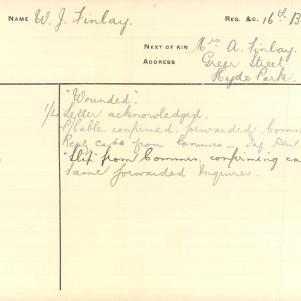 NAME W. J. Finlay. REG. &C. 16th B
NEXT OF KIN Mrs A. Finlay.
ADDRESS Greer Street
Hyde Park.
"Wounded".
1/4 Letter acknowledged.
P/Cable confirmed. forwarded
Reply cable from
"Slip" from Commrs. confirming ca
Same forwarded Inquirer.